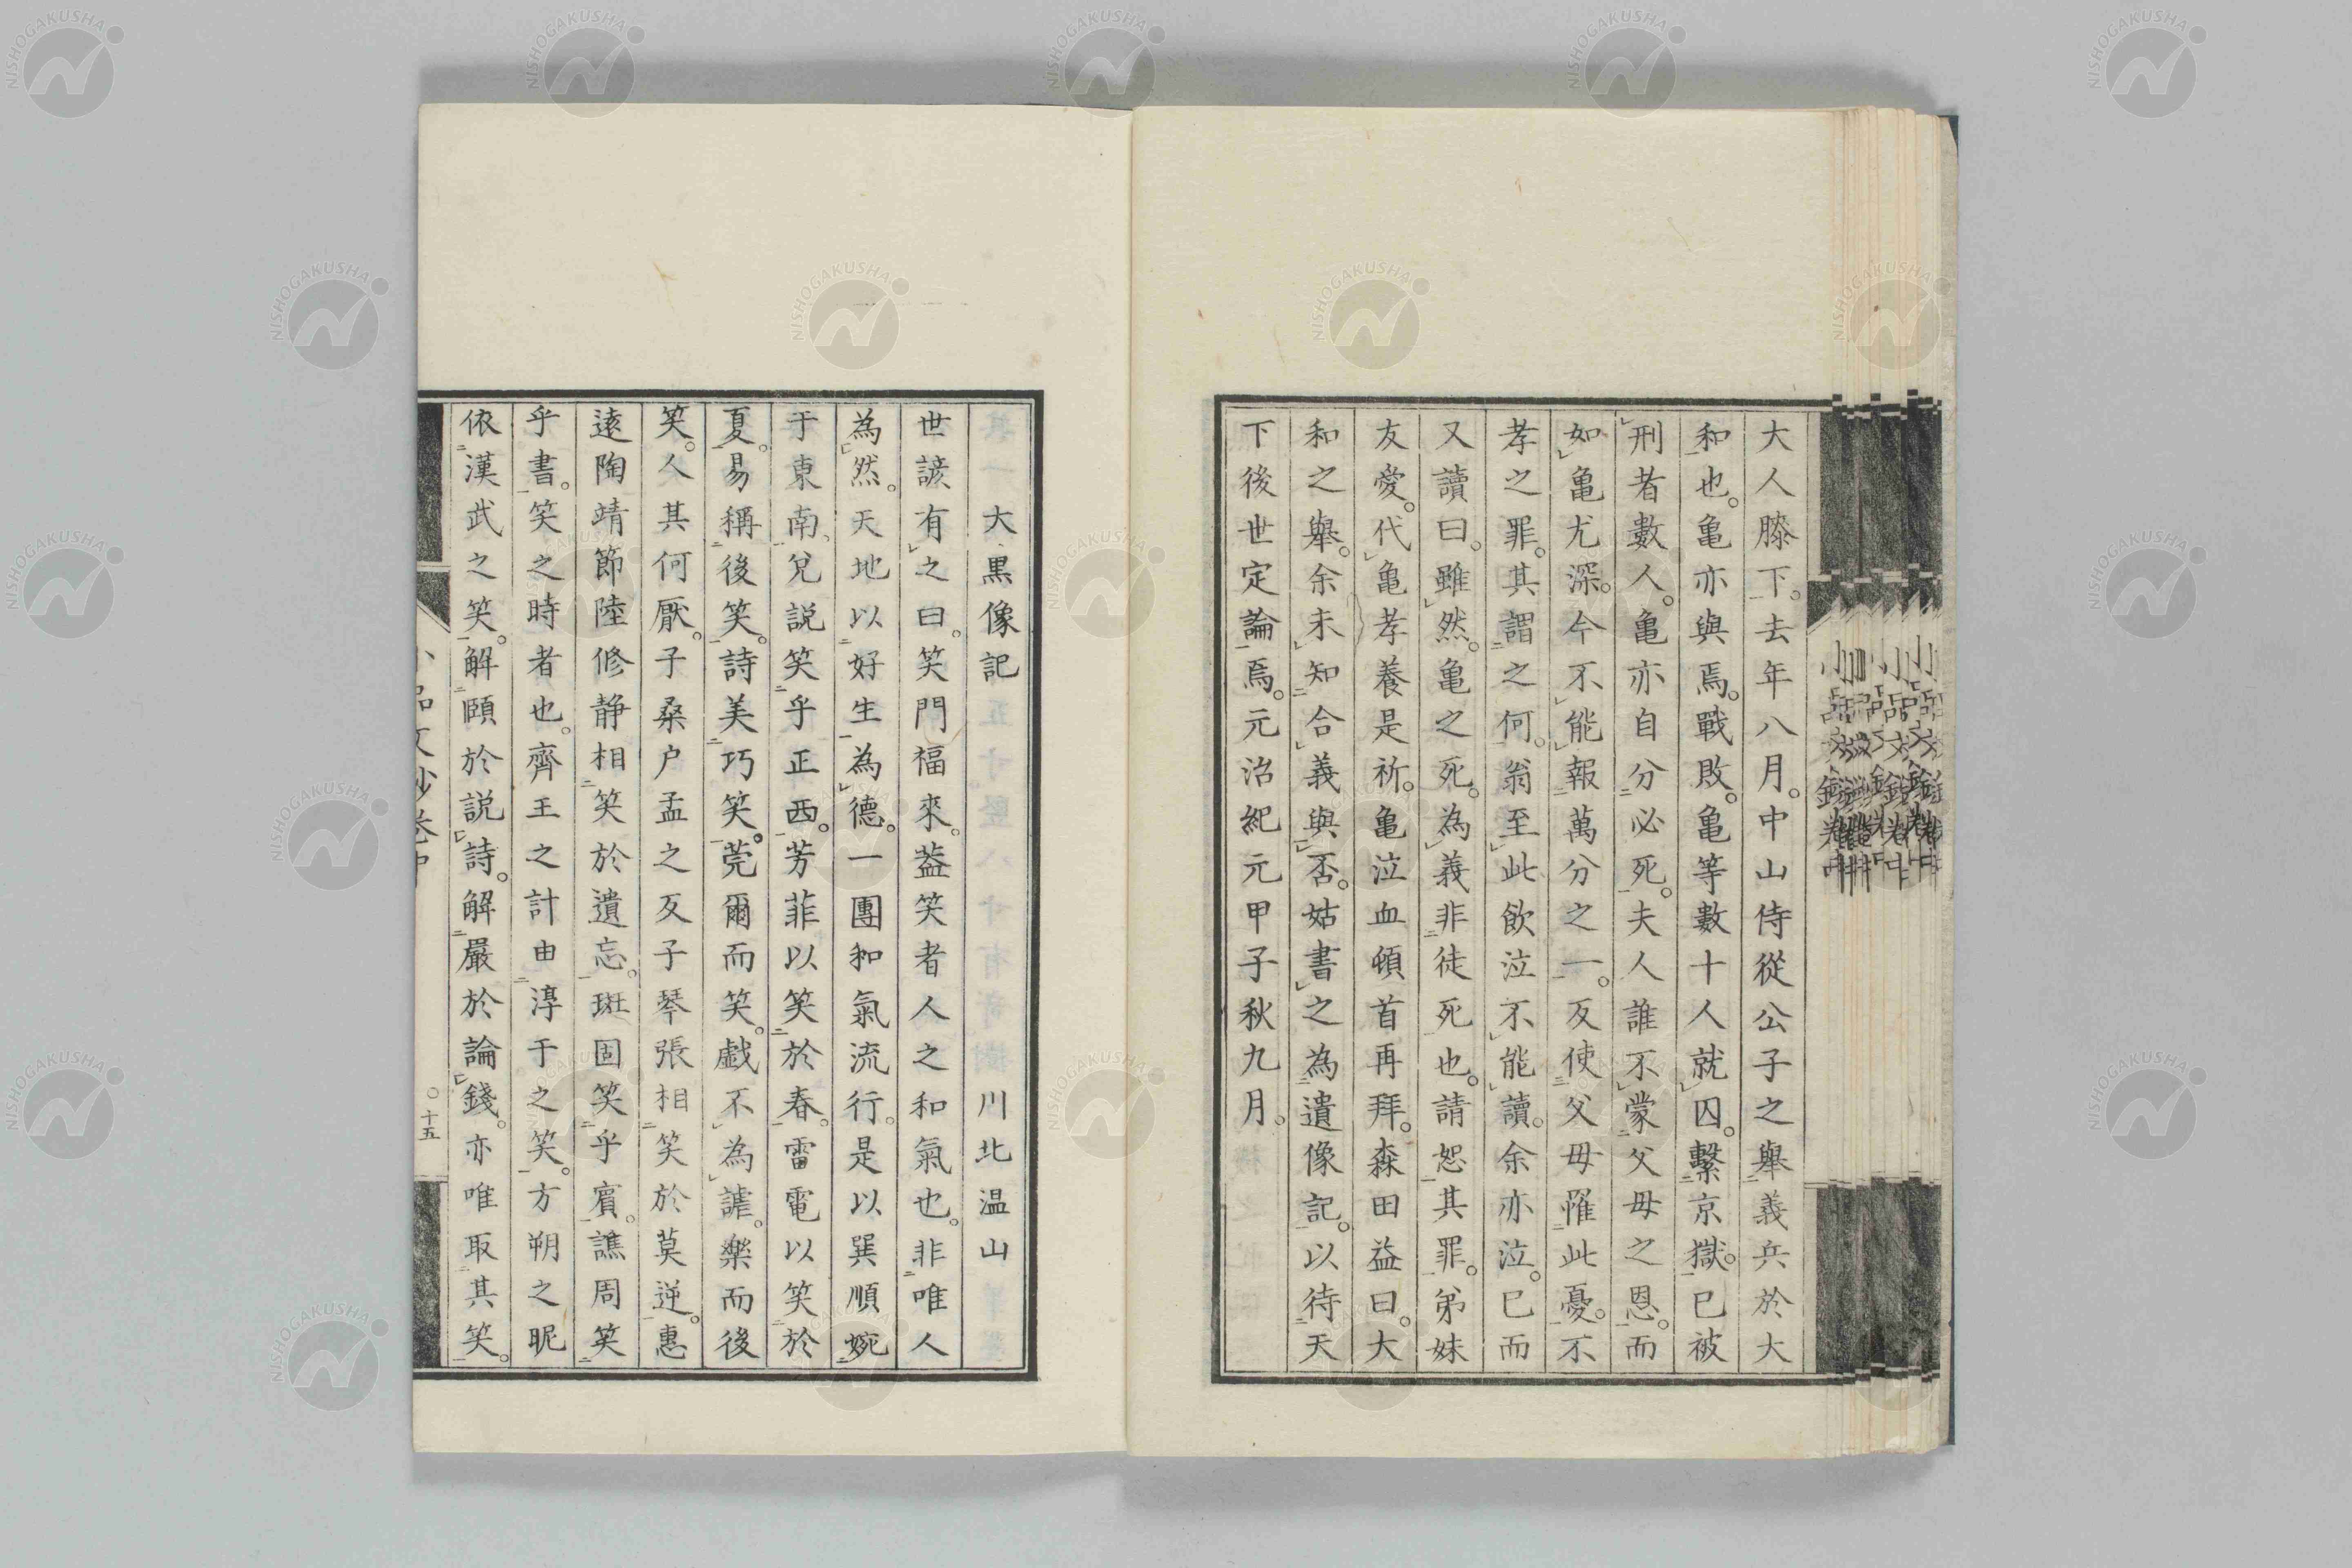 大人膝下。去年八月。中山侍從公子之舉義兵於大
和也。亀亦與焉。戰敗。亀等數十人就囚。繫京獄。已被
刑者數人。亀亦自分必死。夫人誰不蒙父母之恩。而
如亀尤深。今不能報萬分之一。反使父母罹此憂。不
孝之罪。其謂之何。翁至此飲泣不能讀。余亦泣。已而
又讀曰。雖然。亀之死。為義非徒死也。請恕其罪。弟妹
友愛。代亀孝養是祈。亀泣血頓首再拜。森田益曰。大
和之舉。余未知合義與否。姑書之為遺像記。以待天
下後世定論焉。元治紀元甲子秋九月。
大黒像記 川北温山
世諺有之曰。笑門福來。葢笑者人之和氣也。非唯人
為然。天地以好生為德。一團和氣流行。是以巽順婉
于東南。兌説笑乎正西。芳菲以笑於春。雷電以笑於
夏。易稱後笑。詩美巧笑。莞爾而笑。戲不為謔。樂而後
笑。人其何厭。子桑户孟之反子琴張相笑於莫逆。惠
遠陶靖節陸修静相笑於遺忘。班固笑乎賓。譙周笑
乎書。笑之時者也。齊王之計由淳于之笑。方朔之昵
依漢武之笑。解頤於説詩。解嚴於論錢。亦唯取其笑。
小品文鈔卷中
〇十五
NISHOGAKUSHA